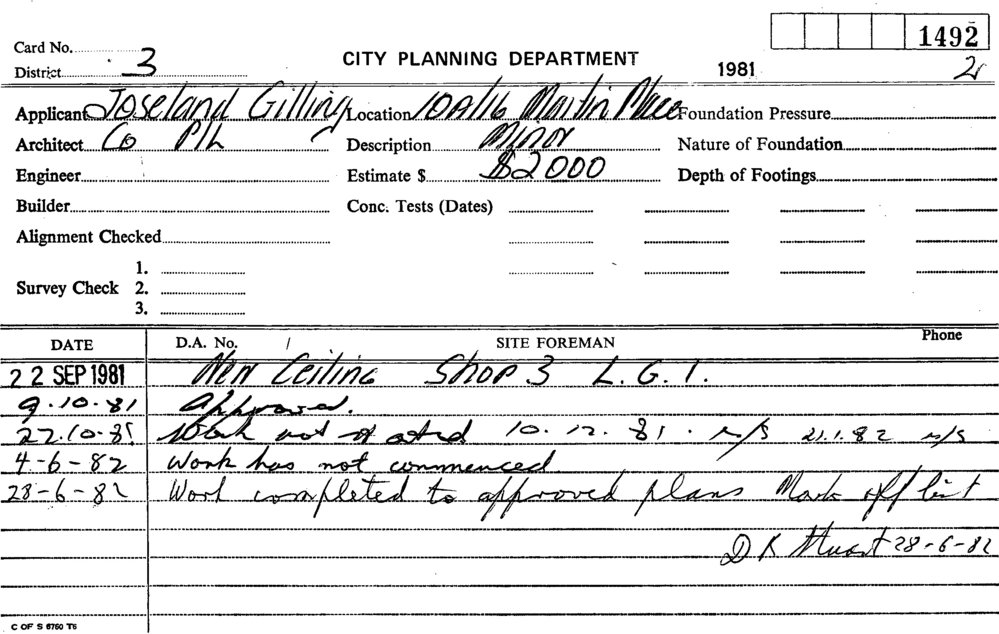 1492
Card No. 3
CITY PLANNING DEPARTMENT
District
1981 2
Applicant Joseland Gilling Location 10A/16 Martin Place Foundation Pressure
Architect Co P/L Description Minor Nature of Foundation
Engineer Estimate $ $2000 Depth of Footings
Builder Conc. Tests (Dates)
Alignment Checked
1.
Survey Check 2.
3.
DATE D.A. No. / SITE FOREMAN Phone
22 SEP 1981 New Ceiling Shop 3 L.G.1.
9.10.81 Approved.
27.10.81 Work not started 10.12.81. n/s 21.1.82 n/s
4-6-82 Work has not commenced
28-6-82 Work completed to approved plans Mark off list
D K Stuart 28-6-82
C OF S 6760 T6